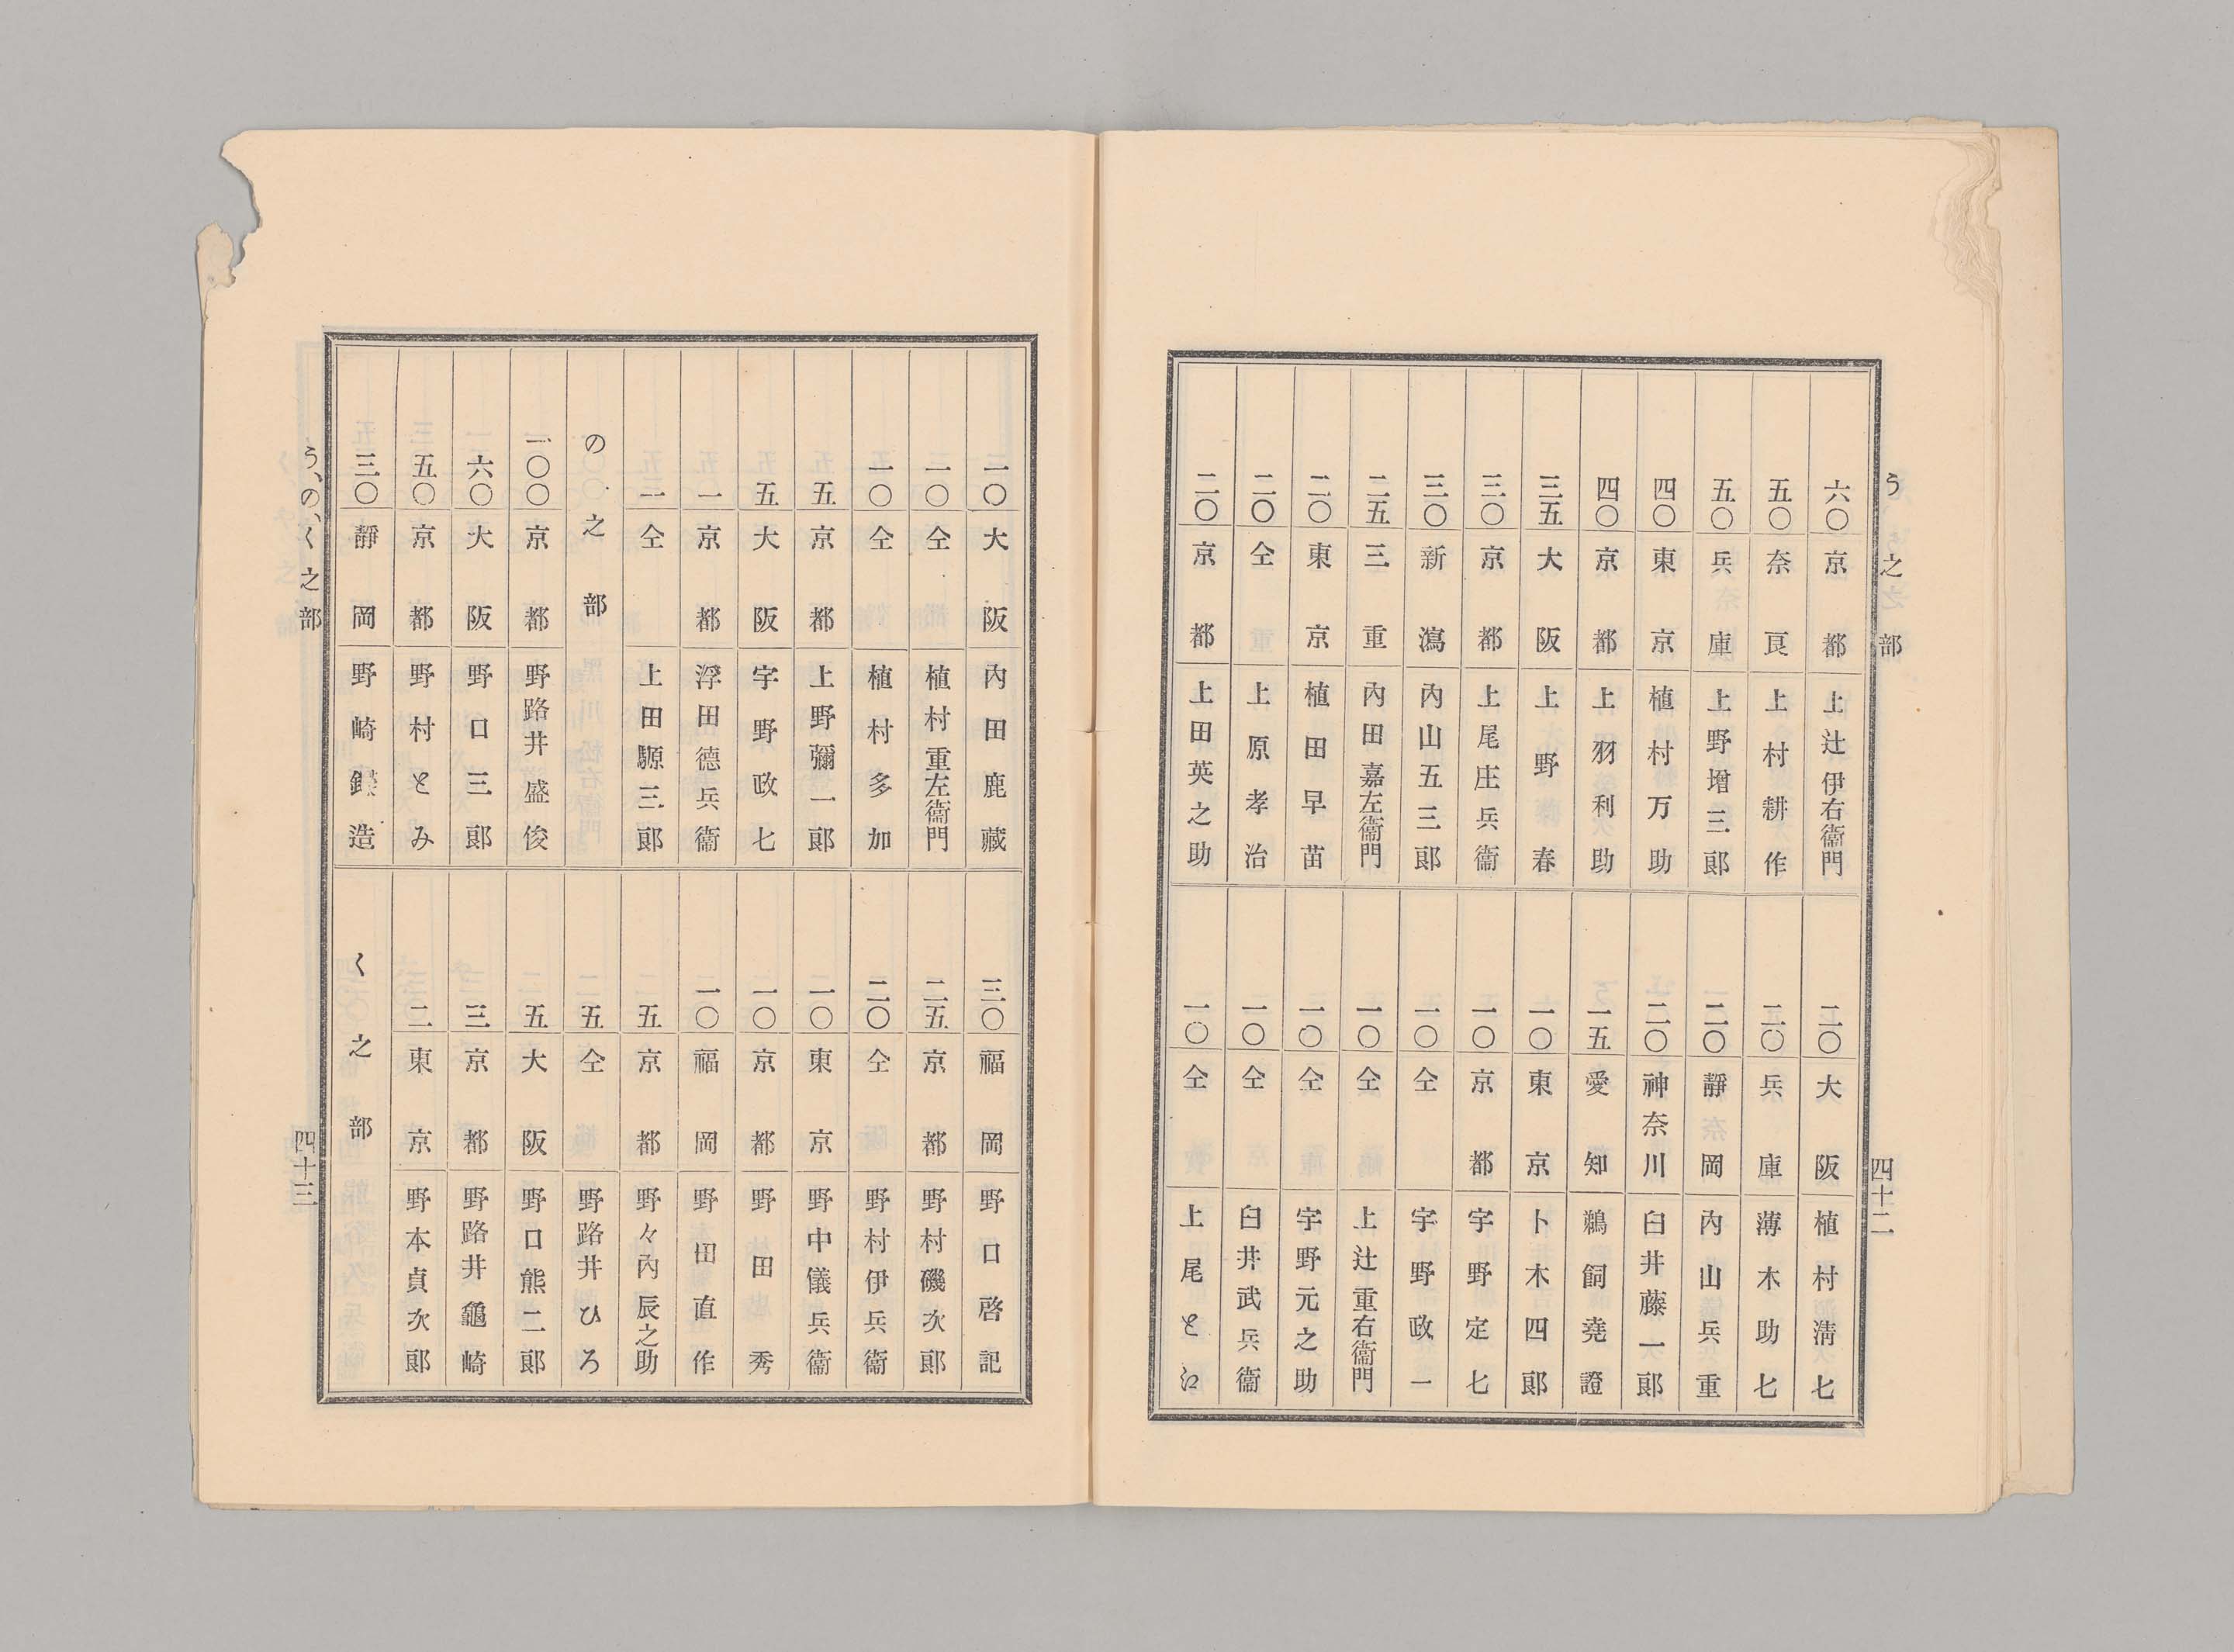 う之部
四十二
六〇 京都 上辻伊右衞門
五〇 奈良 上村耕作
五〇 兵庫 上野增三郞
四〇 東京 植村万助
四〇 京都 上羽利助
三五 大阪 上野春
三〇 京都 上尾庄兵衞
三〇 新潟 內山五三郞
二五 三重 內田嘉左衞門
二〇 東京 植田早苗
二〇 仝 上原孝治
二〇 京都 上田英之助
二〇 大阪 植村淸七
二〇 兵庫 薄木助七
二〇 靜岡 內山儀兵重
二〇 神奈川 臼井藤一郞
一五 愛知 鵜飼堯證
一〇 東京 卜木四郞
一〇 京都 宇野定七
一〇 仝 宇野政一
一〇 仝 上辻重右衞門
一〇 仝 宇野元之助
一〇 仝 臼井武兵衞
一〇 仝 上尾と江
一〇 大阪 內田鹿藏
一〇 仝 植村重左衞門
一〇 仝 植村多加
五 京都 上野彌一郞
五 大阪 宇野政七
一 京都 浮田德兵衞
一 仝 上田騵三郞
の之部
一〇〇 京都 野路井盛俊
六〇 大阪 野口三郞
五〇 京都 野村とみ
三〇 靜岡 野崎銀造
三〇 福岡 野口啓記
二五 京都 野村磯次郞
二〇 仝 野村伊兵衞
一〇 東京 野中儀兵衞
一〇 京都 野田秀
一〇 福岡 野田直作
五 京都 野々內辰之助
五 仝 野路井ひろ
五 大阪 野口熊二郞
三 京都 野路井龜崎
二 東京 野本貞次郞
く之部
う、の、く之部
四十三